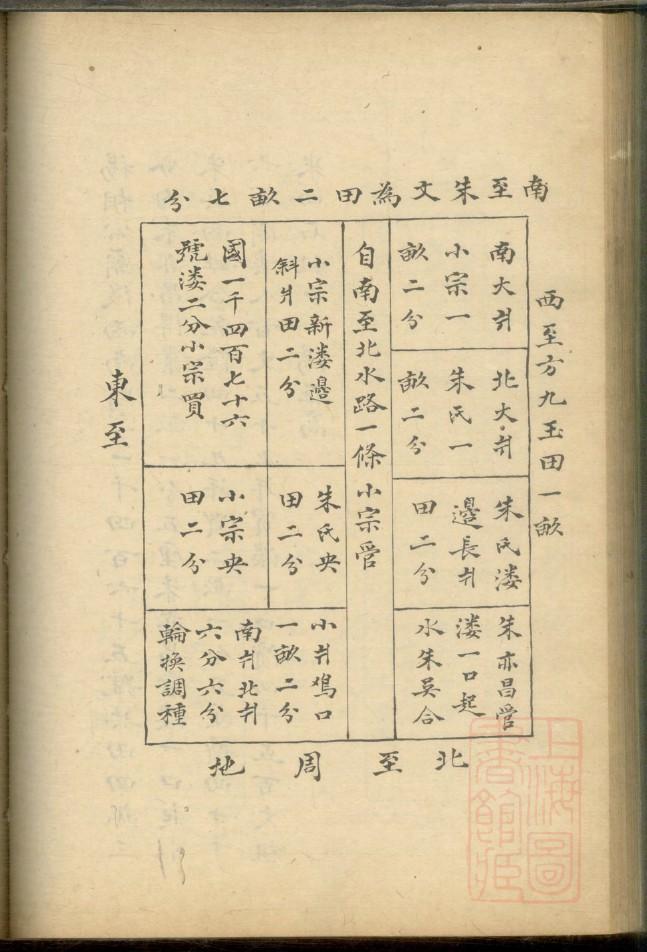 南至朱文為田二畝七分
西至方九玉田一畝
南大爿
小宗一
畝二分
北大爿
朱氏一
畝二分
朱氏溇
邊長爿
田二分
朱亦昌管
溇一口起
水朱吳合
自南至北水路一條小宗管
小宗新溇邊
斜爿田二分
朱氏央
田二分
小爿鳰口
一畝二分
南爿北爿
六分六分
輪換調種
國一千四百七十六
號溇二分小宗買
小宗央
田二分
東至
北至周地
上海圖
書館藏